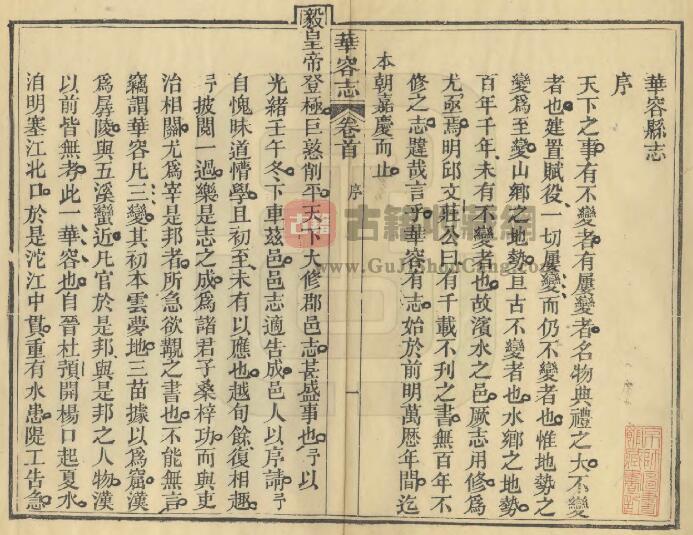 華容縣志
序
天下之事有不變者有屢變者名物典禮之大不變
者也建置賦役一切屢變而仍不變者也惟地勢之
變爲至變山鄉之地勢亘古不變者也水鄉之地勢
百年千年未有不變者也故濱水之邑厥志用修爲
尤亟焉明邱文莊公曰有千載不刊之書無百年不
修之志韙哉言乎華容有志始於前明萬歷年間迄
本朝嘉慶而止
華容志 卷首 序 一
毅皇帝登極巨憝削平天下大修郡邑志甚盛事也予以
光緒壬午冬下車茲邑邑志適告成邑人以序請予
自愧昧道懵學且初至未有以應也越旬餘復相趣
予披閱一過樂是志之成爲諸君子桑梓功而與吏
治相關尤爲宰是邦者所急欲覩之書也不能無言
竊謂華容凡三變其初本雲夢地三苗據以爲窟漢
爲孱陵與五溪蠻近凡官於是邦與是邦之人物漢
以前皆無考此一華容也自晉杜預開楊口起夏水
洎明塞江北口於是沱江中貫重有水患隄工告急
古籍
古籍收藏網
www.GuJiShouCang.com